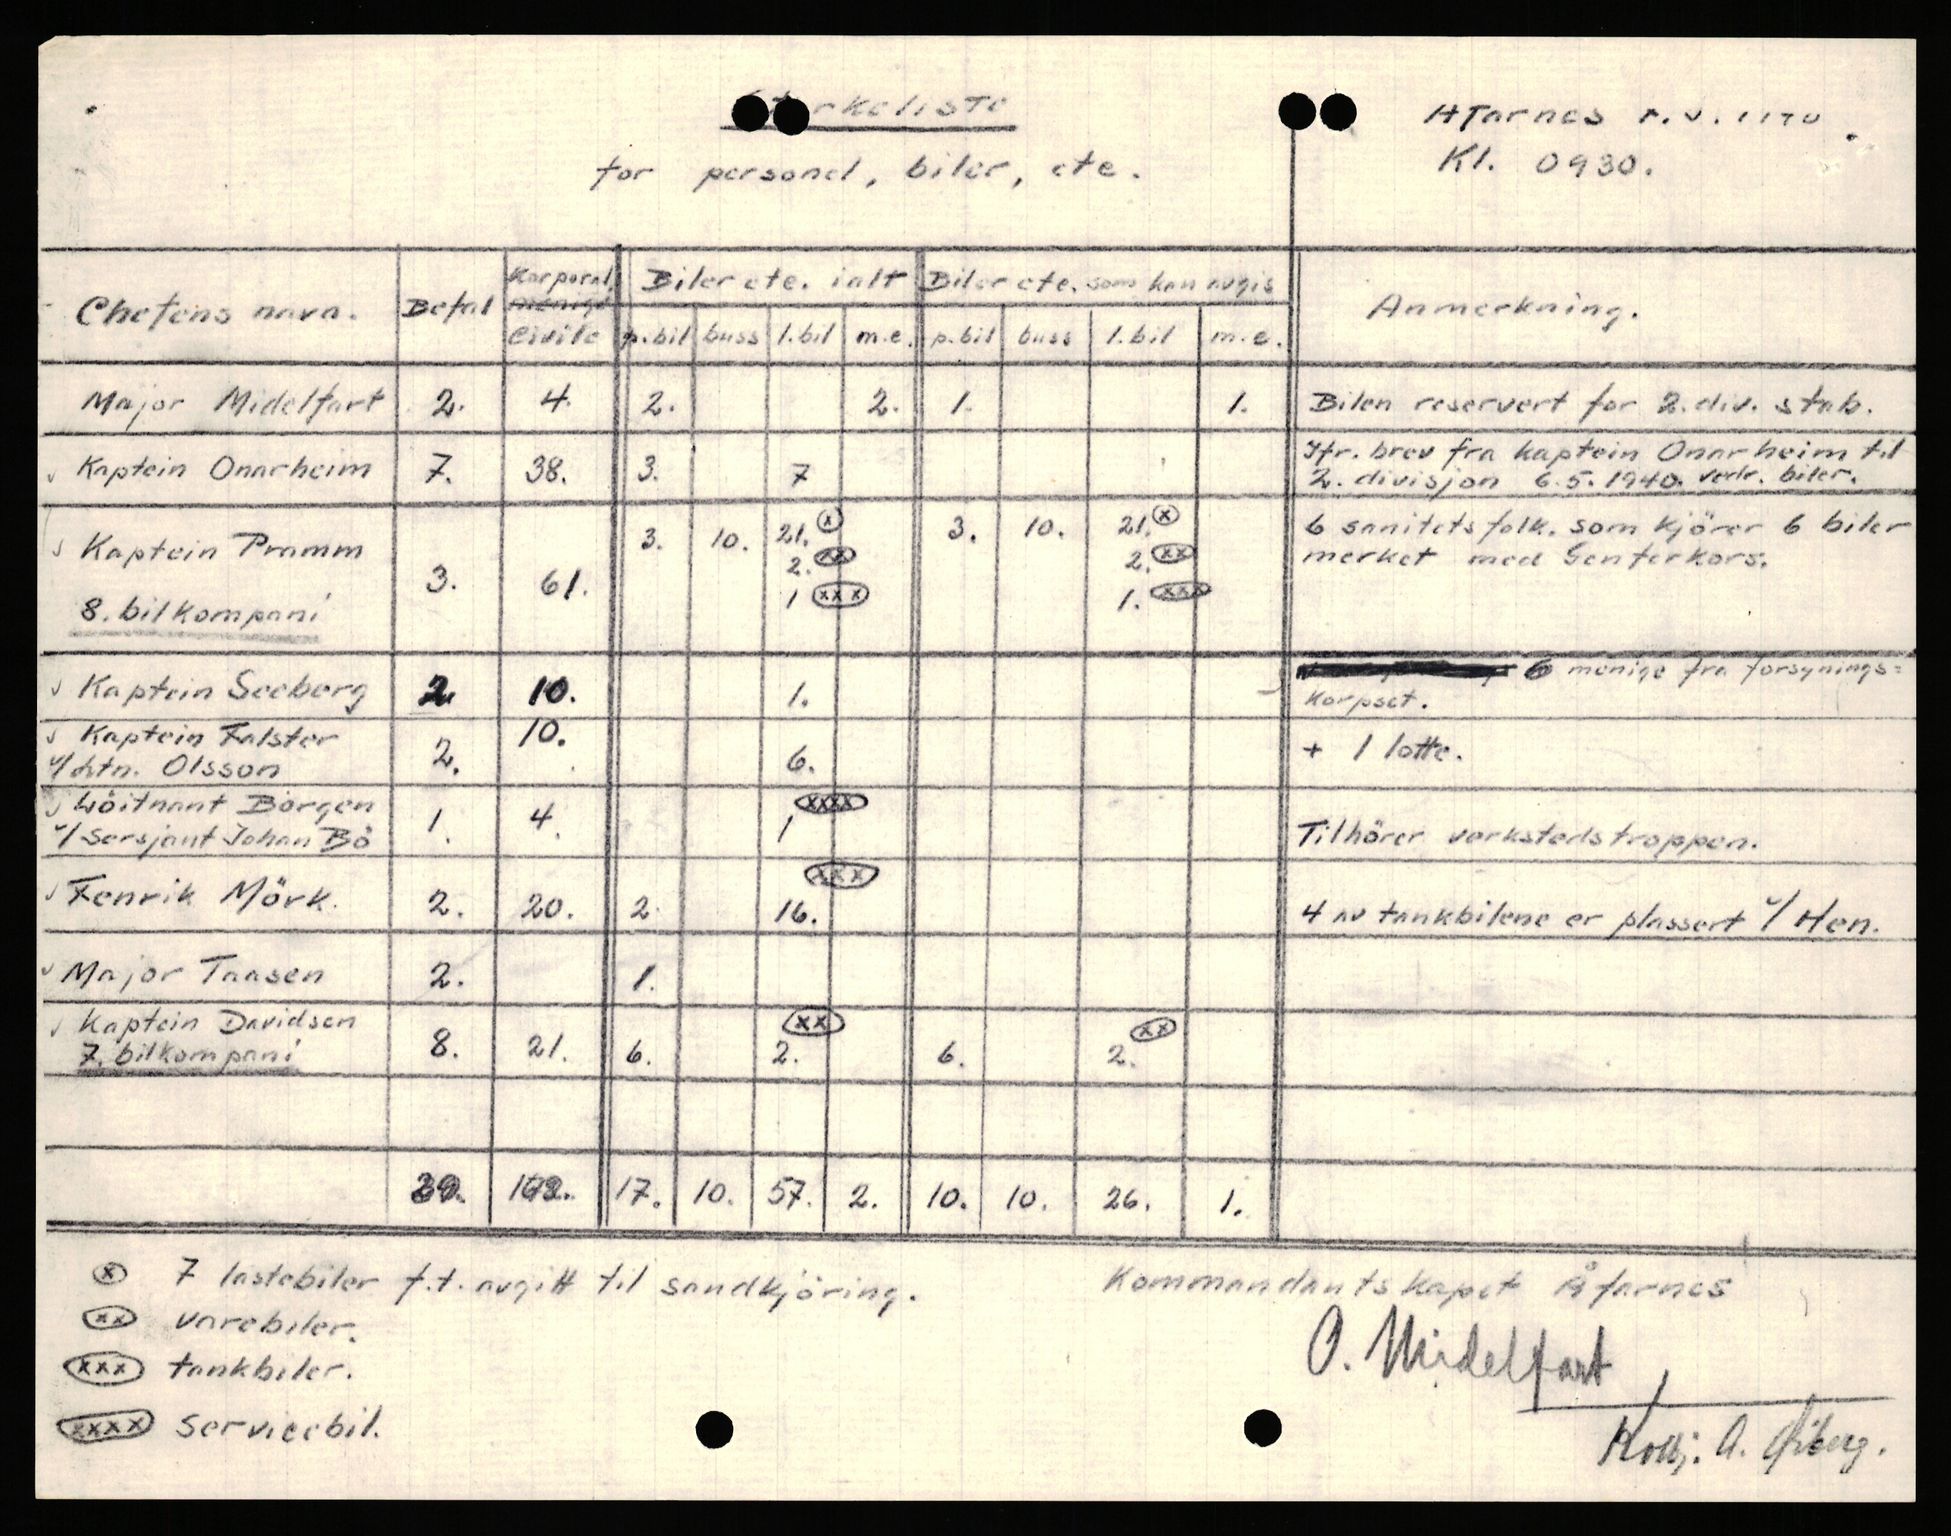 Styrkeliste
for personel, biler, etc.
Åfarnes
Kl. 0930.
Chefens navn. Befal Korporal, menige civile Biler etc. ialt Biler etc. som kan avgis Anmerkning.
p.bil buss l.bil m.c. p.bil buss l.bil m.c.
Major Midelfart 2. 4. 2. 2. 1. 1. Bilen reservert for 2. div. stab.
Kaptein Onarheim 7. 38. 3. 7 Jfr. brev fra kaptein Onarheim til
2. divisjon 6.5.1940. vedr. biler.
Kaptein Pramm 3. 61. 3. 10. 21. (x) 3. 10. 21. (x) 6 sanitetsfolk. som kjörer 6 biler
2. (xx) 2. (xx) merket med Genferkors.
8. bilkompani 1 (xxx) 1. (xxx)
Kaptein Seeberg 2 10. 1. 6 menige fra forsynings=
korpset.
Kaptein Falster 2. 10. 6. + 1 lotte.
v/Ltn. Olsson
Löitnant Borgen 1. 4. 1 (xxxx) Tilhörer verkstedstroppen.
v/Sersjant Johan Bö
Fenrik Mörk. 2. 20. 2. 16. (xxx) 4 av tankbilene er plassert v/ Hen.
Major Taasen 2. 1.
Kaptein Davidsen 8. 21. 6. 2. (xx) 6. 2. (xx)
7. bilkompani
17. 10. 57. 2. 10. 10. 26. 1.
(x) 7 lastebiler f.t. avgitt til sandkjöring.
(xx) varebiler.
(xxx) tankbiler.
(xxxx) servicebil.
Kommandantskapet Åfarnes
O. Midelfart
A.